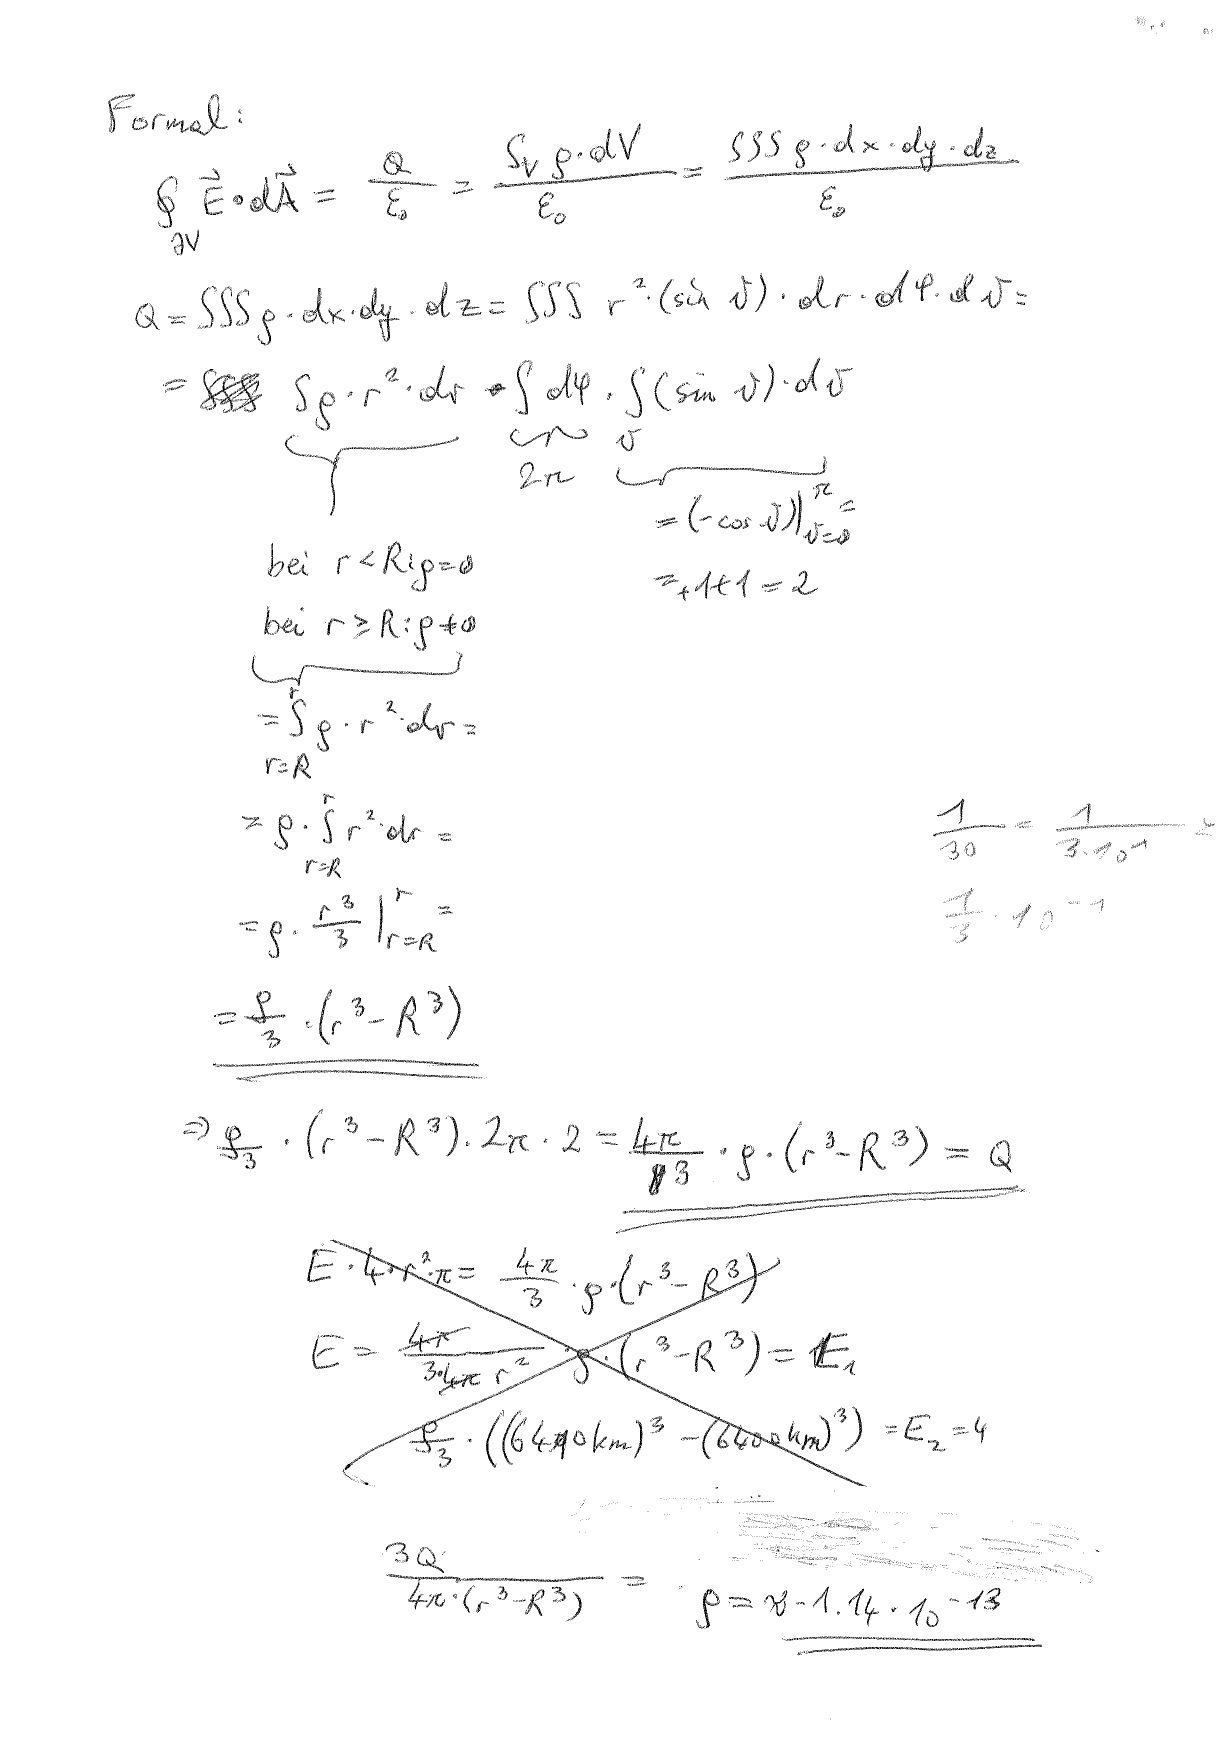 Formal:
∮_∂V E⃗ • dA⃗ = Q/ε₀ = ∫_V ρ·dV / ε₀ = ∫∫∫ ρ·dx·dy·dz / ε₀
Q = ∫∫∫ ρ·dx·dy·dz = ∫∫∫ r²·(sin ϑ)·dr·dφ·dϑ =
= ∫ρ·r²·dr · ∫dφ · ∫_ϑ (sin ϑ)·dϑ
2π
= (-cos ϑ)|_ϑ=0^π =
= +1+1 = 2
bei r < R: ρ=0
bei r ≥ R: ρ≠0
= ∫_r=R^r ρ·r²·dr =
= ρ·∫_r=R^r r²·dr =
1/30 = 1/(3·10¹) =
1/3 · 10⁻¹
= ρ· r³/3 |_r=R^r =
= ρ/3 ·(r³-R³)
⇒ ρ/3 · (r³-R³)·2π·2 = 4π/3 · ρ·(r³-R³) = Q
E·4·r²·π = 4π/3 ·ρ·(r³-R³)
E = 4π/(3·4π r²) ·ρ·(r³-R³) = E₁
ρ/3 · ((6410km)³ - (6400km)³) = E₂ = 4
3Q / (4π·(r³-R³)) = ρ = ≈ -1.14·10⁻¹³